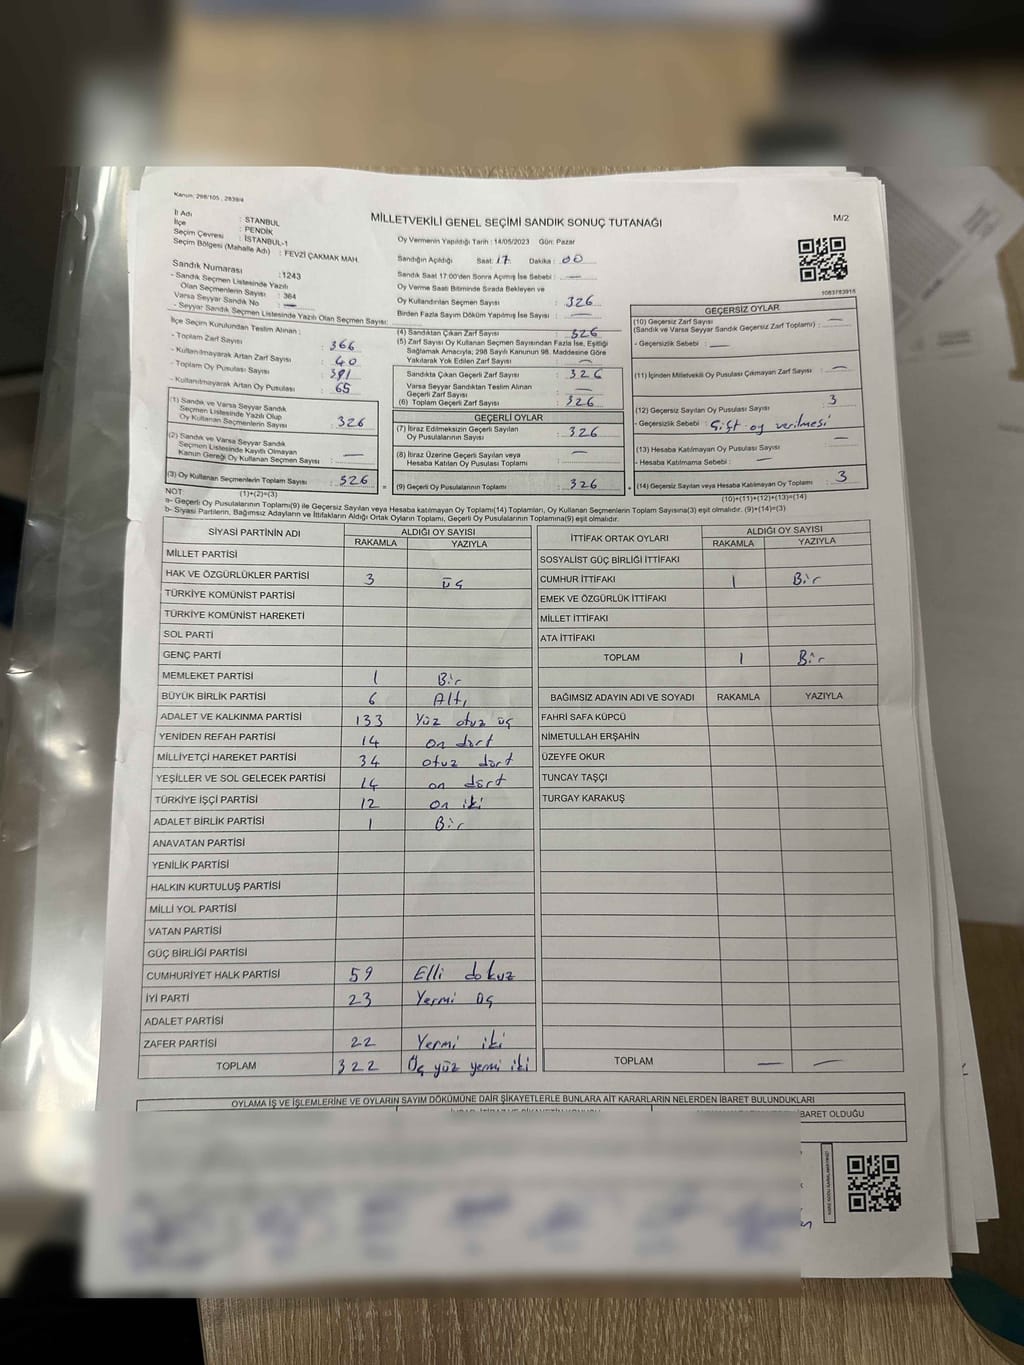 Kanun: 298/105 , 2839/4
MİLLETVEKİLİ GENEL SEÇİMİ SANDIK SONUÇ TUTANAĞI
M/2
İl Adı : STANBUL
İlçe : PENDİK
Seçim Çevresi : İSTANBUL-1
Seçim Bölgesi (Mahalle Adı) : FEVZİ ÇAKMAK MAH.
Sandık Numarası :1243
- Sandık Seçmen Listesinde Yazılı
Olan Seçmenlerin Sayısı : 364
Varsa Seyyar Sandık No : —
- Seyyar Sandık Seçmen Listesinde Yazılı Olan Seçmen Sayısı:
İlçe Seçim Kurulundan Teslim Alınan :
- Toplam Zarf Sayısı : 366
- Kullanılmayarak Artan Zarf Sayısı : 40
- Toplam Oy Pusulası Sayısı : 391
- Kullanılmayarak Artan Oy Pusulası : 65
(1) Sandık ve Varsa Seyyar Sandık
Seçmen Listesinde Yazılı Olup
Oy Kullanan Seçmenlerin Sayısı : 326
(2) Sandık ve Varsa Seyyar Sandık
Seçmen Listesinde Kayıtlı Olmayan
Kanun Gereği Oy Kullanan Seçmen Sayısı : —
(3) Oy Kullanan Seçmenlerin Toplam Sayısı : 326
(1)+(2)=(3)
Oy Vermenin Yapıldığı Tarih : 14/05/2023 Gün: Pazar
Sandığın Açıldığı Saat: 17 Dakika : 00
Sandık Saat 17:00'den Sonra Açılmış İse Sebebi : —
Oy Verme Saati Bitiminde Sırada Bekleyen ve
Oy Kullandırılan Seçmen Sayısı : 326
Birden Fazla Sayım Döküm Yapılmış İse Sayısı : —
(4) Sandıktan Çıkan Zarf Sayısı : 326
(5) Zarf Sayısı Oy Kullanan Seçmen Sayısından Fazla İse, Eşitliği
Sağlamak Amacıyla; 298 Sayılı Kanunun 98. Maddesine Göre
Yakılarak Yok Edilen Zarf Sayısı : —
Sandıkta Çıkan Geçerli Zarf Sayısı : 326
Varsa Seyyar Sandıktan Teslim Alınan
Geçerli Zarf Sayısı : —
(6) Toplam Geçerli Zarf Sayısı : 326
GEÇERLİ OYLAR
(7) İtiraz Edilmeksizin Geçerli Sayılan
Oy Pusulalarının Sayısı : 326
(8) İtiraz Üzerine Geçerli Sayılan veya
Hesaba Katılan Oy Pusulası Toplamı : —
(9) Geçerli Oy Pusulalarının Toplamı : 326
1083783915
GEÇERSİZ OYLAR
(10) Geçersiz Zarf Sayısı
(Sandık ve Varsa Seyyar Sandık Geçersiz Zarf Toplamı) : —
- Geçersizlik Sebebi : —
(11) İçinden Milletvekili Oy Pusulası Çıkmayan Zarf Sayısı : —
(12) Geçersiz Sayılan Oy Pusulası Sayısı : 3
- Geçersizlik Sebebi : Çift oy verilmesi
(13) Hesaba Katılmayan Oy Pusulası Sayısı : —
- Hesaba Katılmama Sebebi : —
(14) Geçersiz Sayılan veya Hesaba Katılmayan Oy Toplamı : 3
(10)+(11)+(12)+(13)=(14)
NOT:
a- Geçerli Oy Pusulalarının Toplamı(9) ile Geçersiz Sayılan veya Hesaba katılmayan Oy Toplamı(14) Toplamları, Oy Kullanan Seçmenlerin Toplam Sayısına(3) eşit olmalıdır. (9)+(14)=(3)
b- Siyasi Partilerin, Bağımsız Adayların ve İttifakların Aldığı Ortak Oyların Toplamı, Geçerli Oy Pusulalarının Toplamına(9) eşit olmalıdır.
SİYASİ PARTİNİN ADI ALDIĞI OY SAYISI
RAKAMLA YAZIYLA
MİLLET PARTİSİ
HAK VE ÖZGÜRLÜKLER PARTİSİ 3 üç
TÜRKİYE KOMÜNİST PARTİSİ
TÜRKİYE KOMÜNİST HAREKETİ
SOL PARTİ
GENÇ PARTİ
MEMLEKET PARTİSİ 1 Bir
BÜYÜK BİRLİK PARTİSİ 6 Altı
ADALET VE KALKINMA PARTİSİ 133 Yüz otuz üç
YENİDEN REFAH PARTİSİ 14 on dört
MİLLİYETÇİ HAREKET PARTİSİ 34 otuz dört
YEŞİLLER VE SOL GELECEK PARTİSİ 14 on dört
TÜRKİYE İŞÇİ PARTİSİ 12 on iki
ADALET BİRLİK PARTİSİ 1 Bir
ANAVATAN PARTİSİ
YENİLİK PARTİSİ
HALKIN KURTULUŞ PARTİSİ
MİLLİ YOL PARTİSİ
VATAN PARTİSİ
GÜÇ BİRLİĞİ PARTİSİ
CUMHURİYET HALK PARTİSİ 59 Elli dokuz
İYİ PARTİ 23 Yermi üç
ADALET PARTİSİ
ZAFER PARTİSİ 22 Yermi iki
TOPLAM 322 Üç yüz yermi iki
İTTİFAK ORTAK OYLARI ALDIĞI OY SAYISI
RAKAMLA YAZIYLA
SOSYALIST GÜÇ BİRLİĞİ İTTİFAKI
CUMHUR İTTİFAKI 1 Bir
EMEK VE ÖZGÜRLÜK İTTİFAKI
MİLLET İTTİFAKI
ATA İTTİFAKI
TOPLAM 1 Bir
BAĞIMSIZ ADAYIN ADI VE SOYADI RAKAMLA YAZIYLA
FAHRİ SAFA KÜPCÜ
NİMETULLAH ERŞAHİN
ÜZEYFE OKUR
TUNCAY TAŞÇI
TURGAY KARAKUŞ
TOPLAM — —
OYLAMA İŞ VE İŞLEMLERİNE VE OYLARIN SAYIM DÖKÜMÜNE DAİR ŞİKAYETLERLE BUNLARA AİT KARARLARIN NELERDEN İBARET BULUNDUKLARI
İBARET OLDUĞU